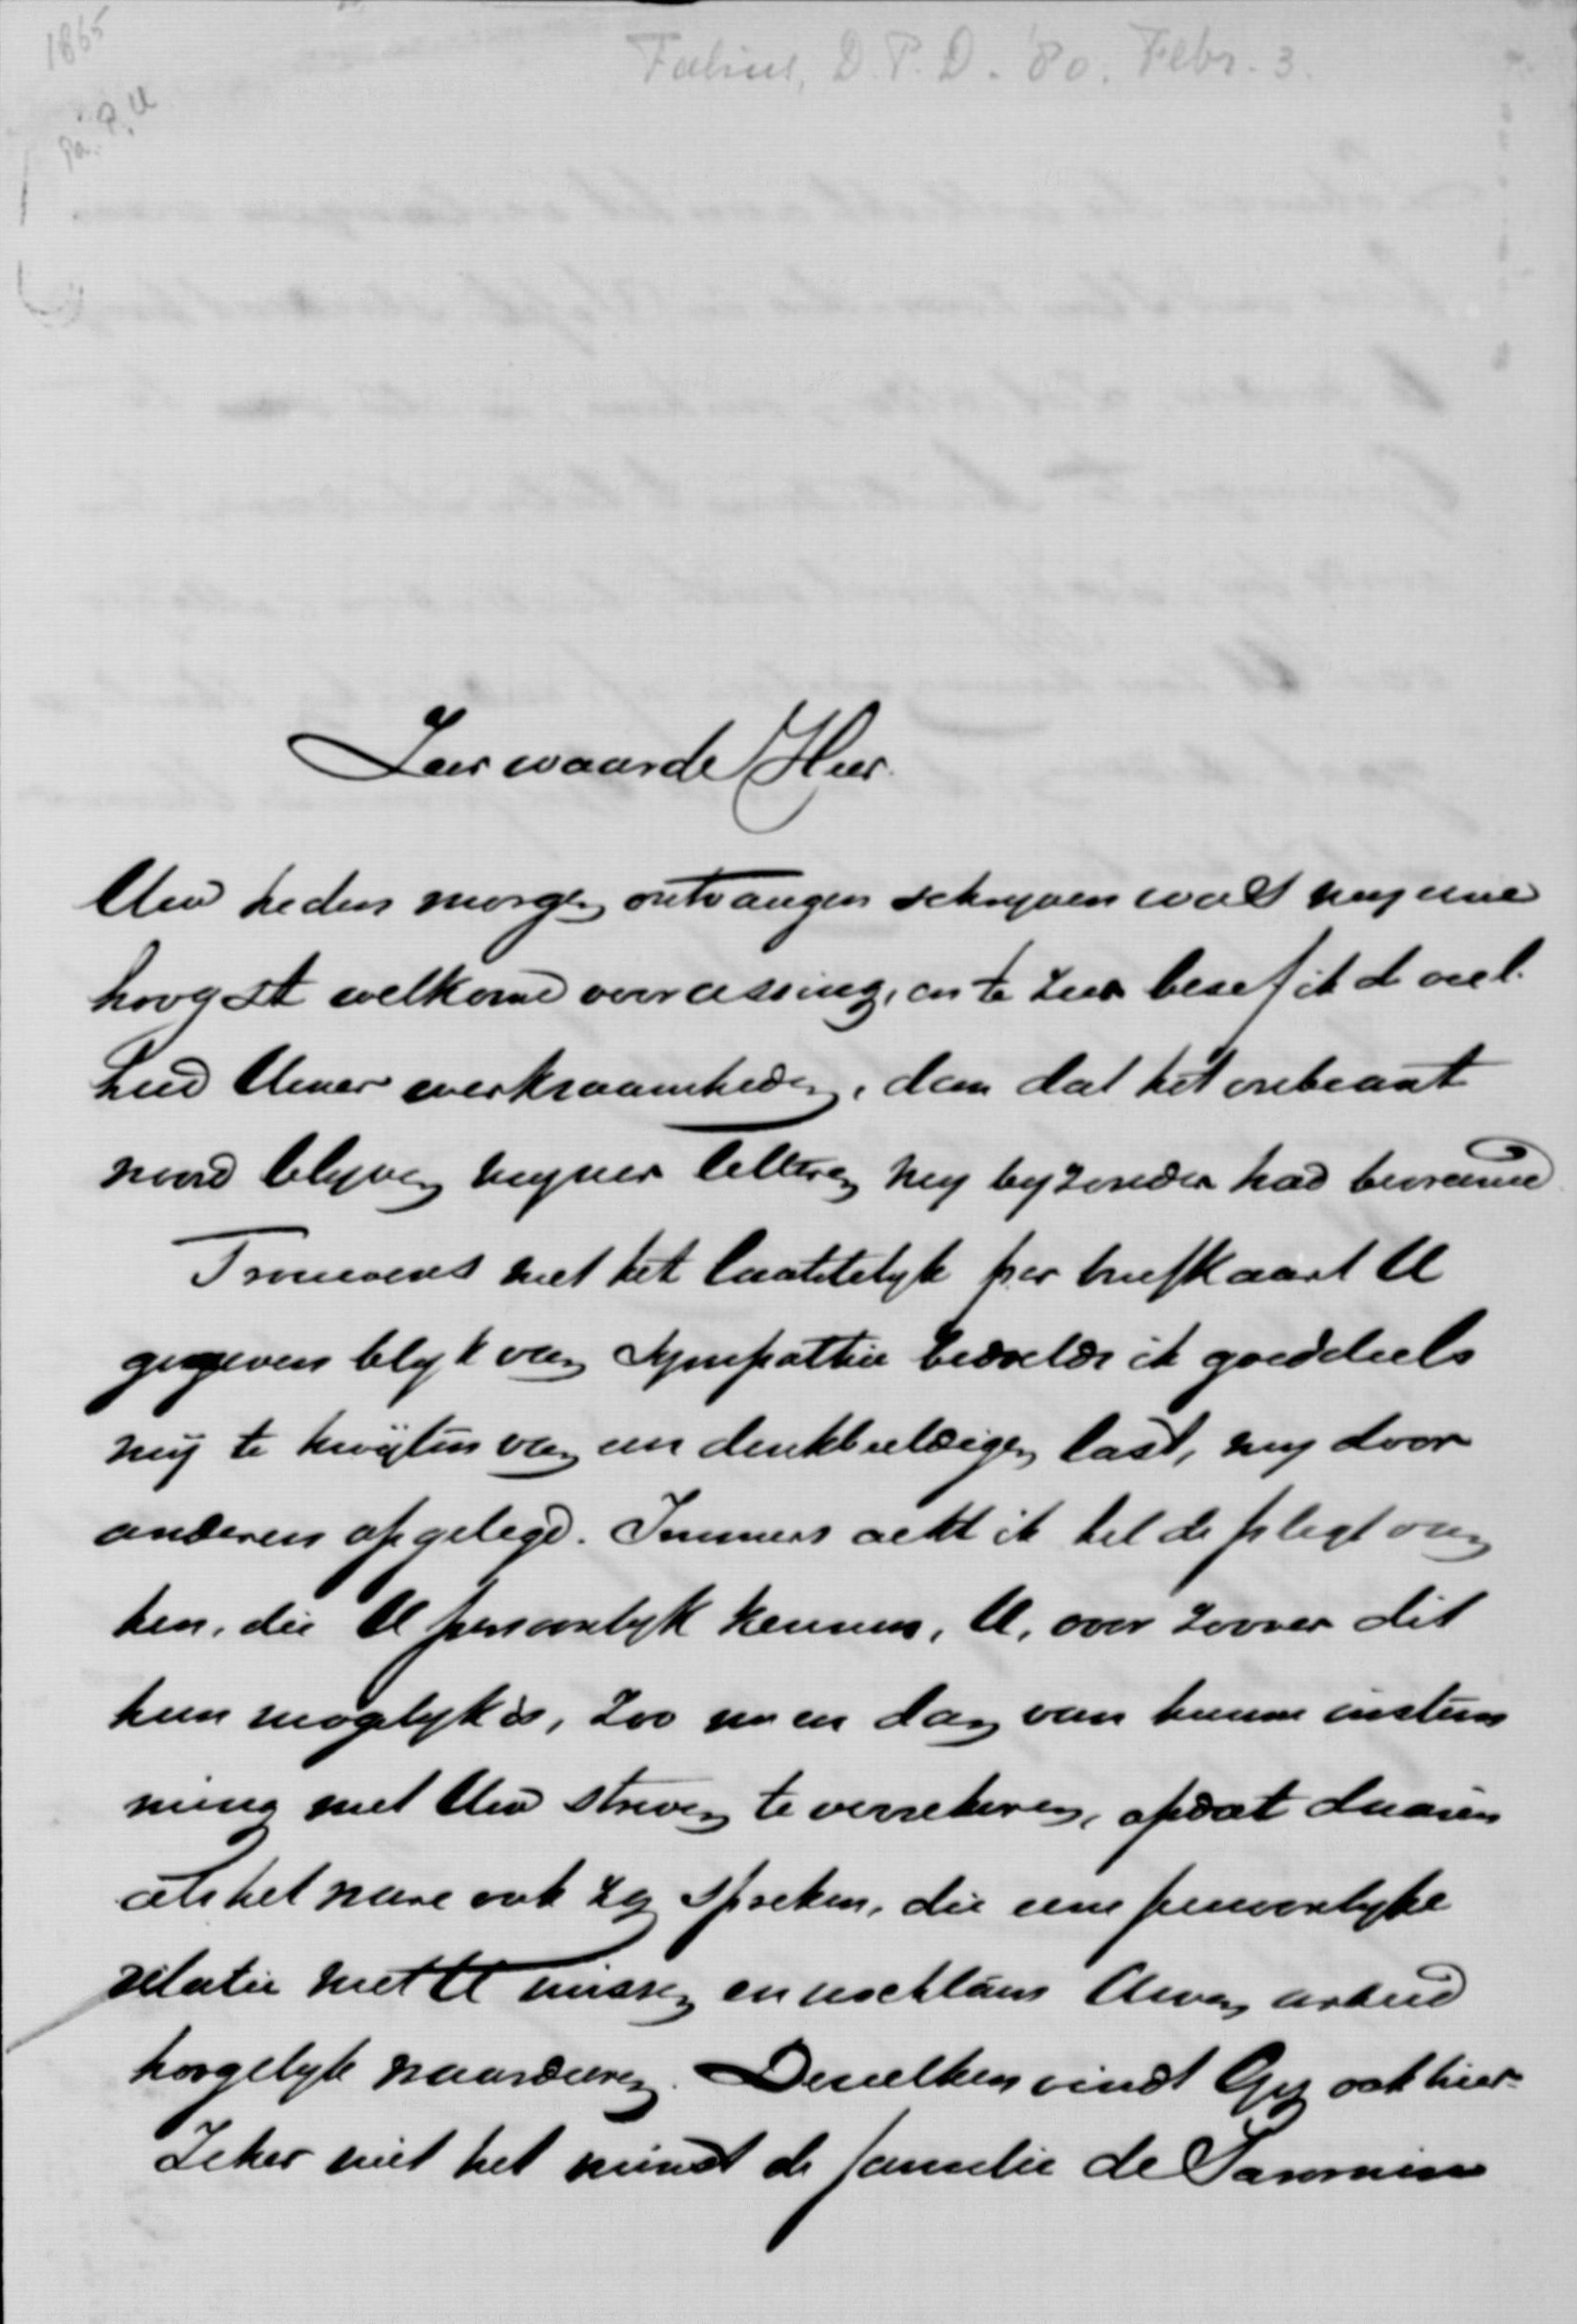 1865
Fabius, D.P.D. '80. Febr. 3.
Zeer waarde Heer
Uw heden morgen ontvangen schrijven was mij eene
hoogst welkome verrassing, en te zeer besef ik de veel
heid Uwer werkzaamheden, dan dat het onbeant
woord blijven mijner letteren mij bijzonder had bevreemd
Trouwens met het laatstelijk per briefkaart U
gegeven blijk van sympathie bedoelde ik goeddeels
mij te kwijten van een denkbeeldigen last, mij door
anderen opgelegd. Immers acht ik het de pligt van
hen, die U persoonlijk kennen, U, voor zoover dit
hun mogelijk is, zoo nu en dan van hunne instem
ming met Uw streven te verzekeren, opdat daarin
als het ware ook zij spreken, die eene persoonlijke
relatie met U missen en nochtans Uwen arbeid
hoogelijk waardeeren. Dezulken vindt Gij ook hier
Zeker niet het minst de familie de Savornin